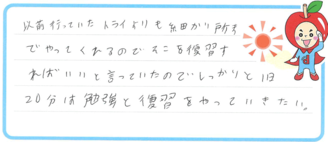 以前行っていたトライよりも細かい所まで
でやってくれるのでそこを復習す
ればいいと言っていたのでしっかりと1日
20分は勉強と復習をやっていきたい。